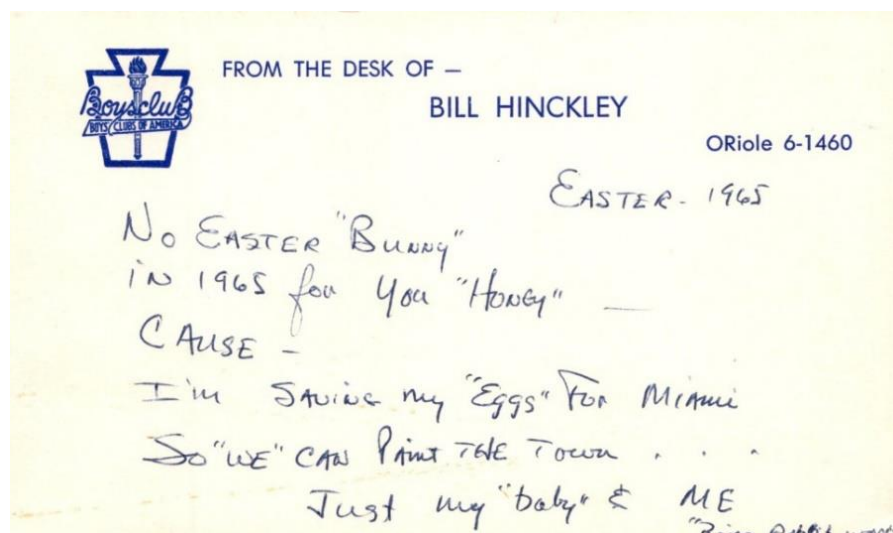 Boysclub
BOYS' CLUBS OF AMERICA
FROM THE DESK OF —
BILL HINCKLEY
ORiole 6-1460
EASTER - 1965
No EASTER "Bunny"
in 1965 for You "Honey" —
CAUSE -
I'm SAVING my "Eggs" For Miami
So "WE" CAN PAINT THE Town . . .
Just my "baby" & ME